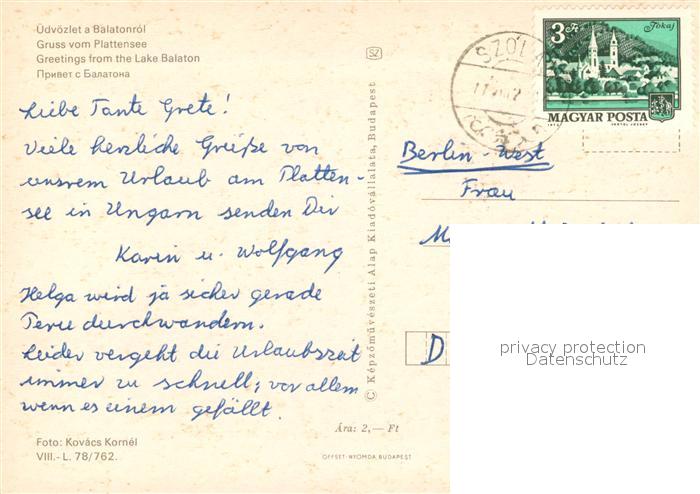 Üdvözlet a Balatonról
Gruss vom Plattensee
Greetings from the Lake Balaton
Привет с Балатона
SZ
3 Ft
Tokaj
MAGYAR POSTA
Liebe Tante Grete!
Viele herzliche Grüße von
unsrem Urlaub am Platten-
see in Ungarn senden Dir
Karin u. Wolfgang
Helga wird ja sicher gerade
Peru durchwandern.
Leider vergeht die Urlaubszeit
immer zu schnell; vor allem
wenn es einem gefällt.
Foto: Kovács Kornél
VIII.- L. 78/762.
© Képzőművészeti Alap Kiadóvállalata, Budapest
Ára: 2,— Ft
OFFSET-NYOMDA BUDAPEST
Berlin-West
Frau
D
privacy protection
Datenschutz